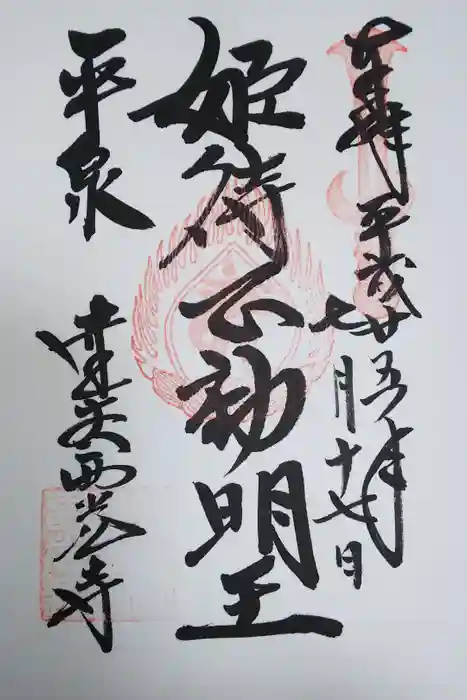 奉拝 平成廿五年
七月十七日
姫待不動明王
平泉
達谷西光寺